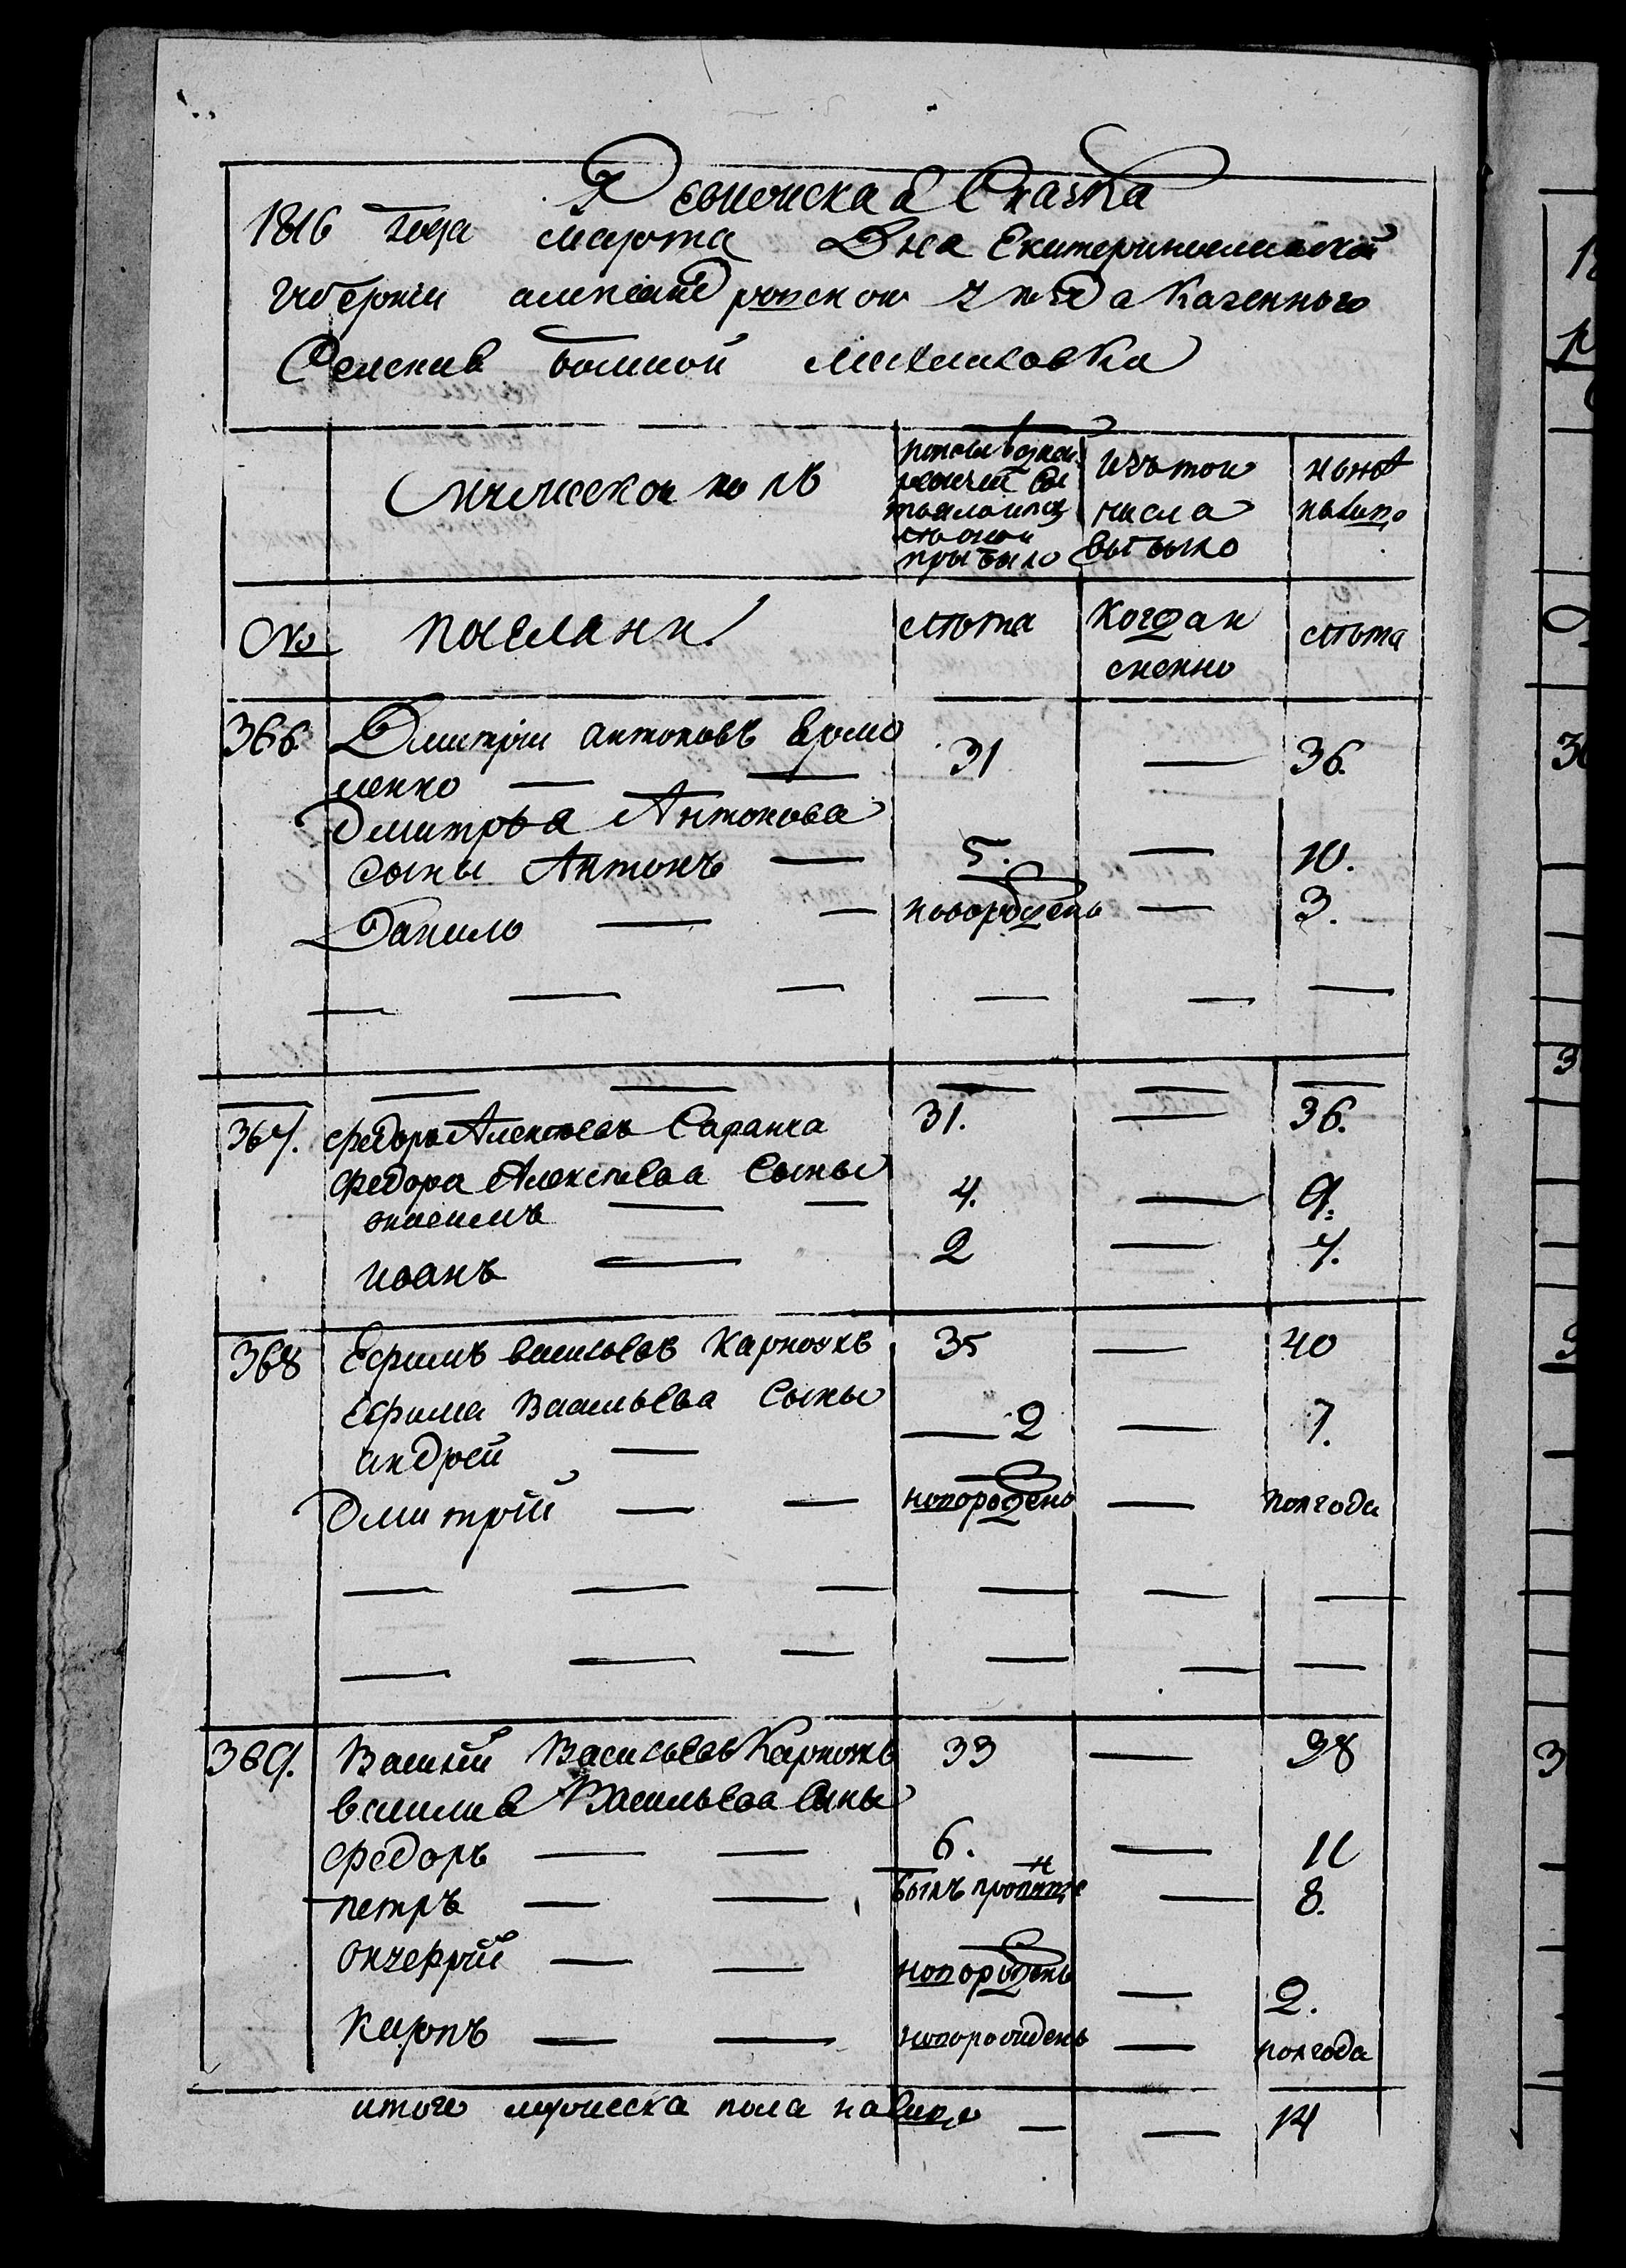 Ревижская Сказка
1816 года марта Дня Екатеринославской
губернии александровского уезда Казенного
Селения большой михайловки
мужеской полъ
по последней ревизии состояло и после оной прибыло
изъ того числа выбыло
ныне налицо
№ поселяни
лета
Когда именно
лета
366. Дмитрии антоновъ Ермо 31 — 36.
ленко — —
Дмитрия Антонова
Сыны Антонъ — 5. — 10.
Данило — — новорожденъ — 3.
367. федоръ Алексеевъ Саранча 31. — 36.
федора Алексеева Сыны
онисимъ — — 4. — 9.
иванъ — 2 — 7.
368 Ефимъ васильевъ Карноухъ 35 — 40
Ефима Васильева Сыны
андрей — 2 — 7.
Дмитрій — — новорожденъ — полгода
369. Василій Васильевъ Карноухъ 33 — 38
василия Васильева Сыны
федоръ — — 6. — 11
петръ — — былъ пропущенъ — 8.
онуфрій — — новорожденъ — 2.
Карпъ — — новорожденъ — полгода
итого мужеска пола налицо — — 14